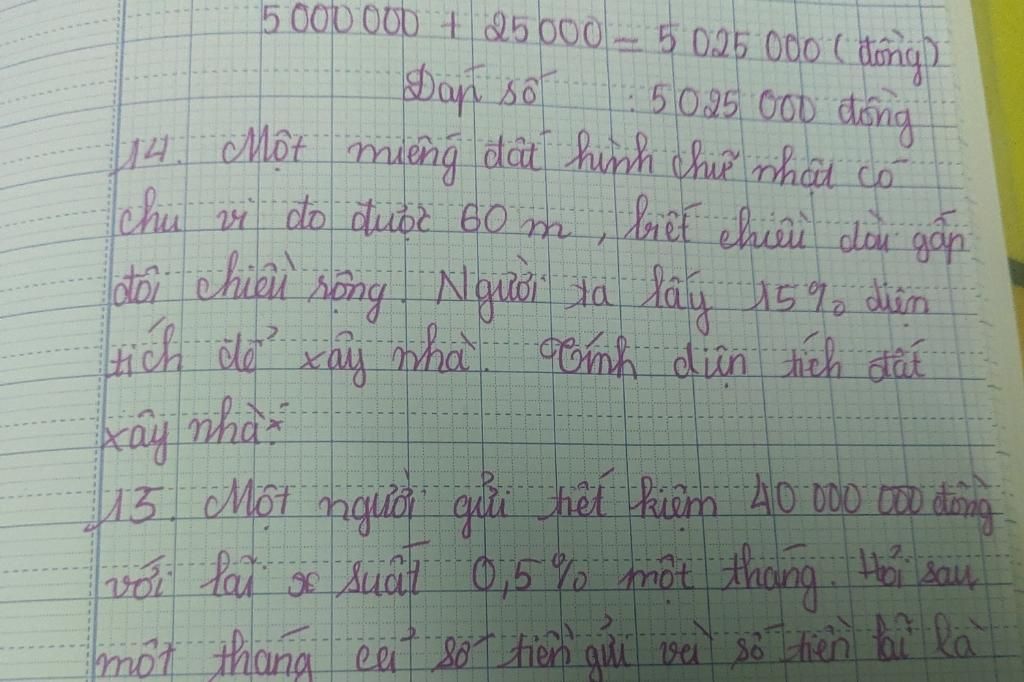 5 000 000 + 25 000 = 5 025 000 ( đồng)
Đáp số : 5 025 000 đồng
14. Một miếng đất hình chữ nhật có
chu vi đo được 60 m, biết chiều dài gấp
đôi chiều rộng. Người ta lấy 15% diện
tích để xây nhà. Tính diện tích đất
xây nhà?
15. Một người gửi tiết kiệm 40 000 000 đồng
với lãi suất 0,5% một tháng. Hỏi sau
một tháng cả số tiền gửi và số tiền lãi là